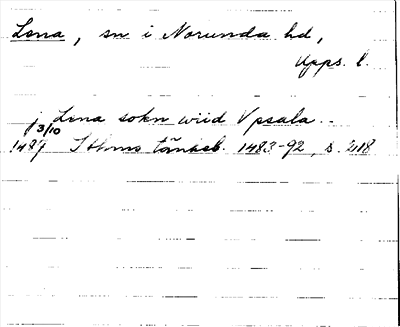 Lena, sn i Norunda hd,
Upps. l.
j Lena sokn wiid Vpsala..
3/10
1489 Sthms tänkeb. 1483-92, s. 418